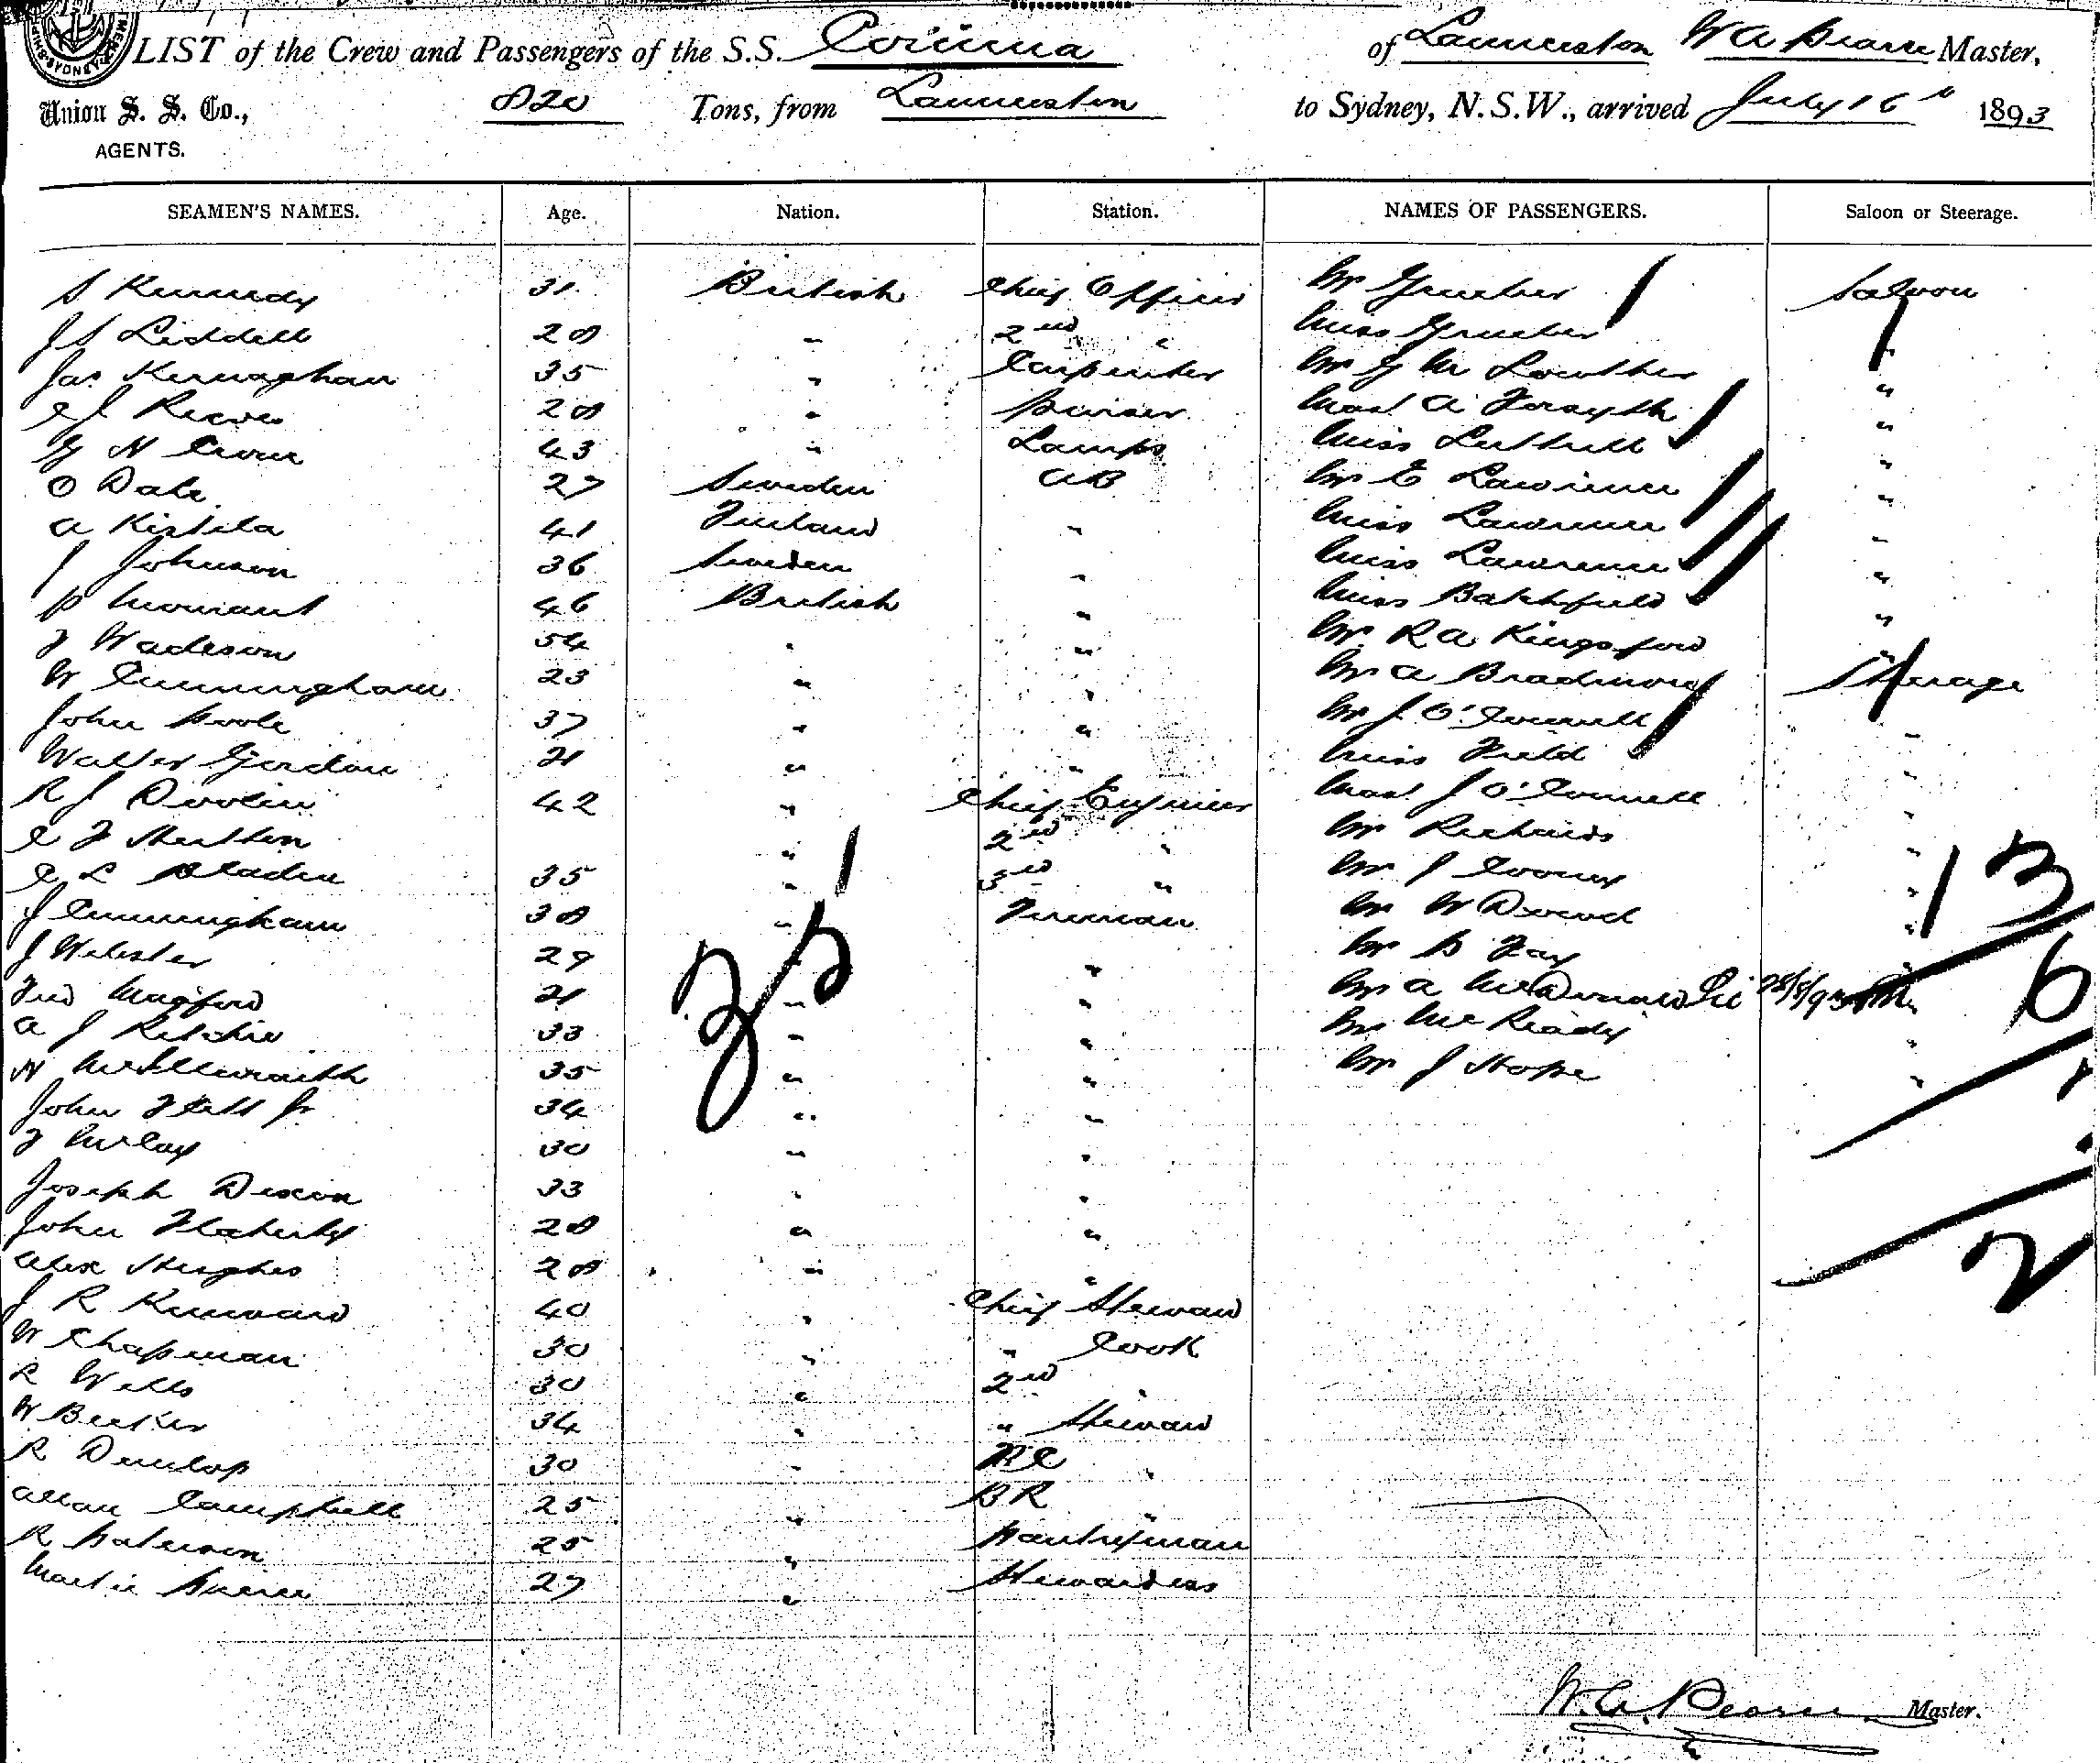 LIST of the Crew and Passengers of the S.S. Corinna of Launceston W A Pearce Master,
Union S. S. Co., 820 Tons, from Launceston to Sydney, N.S.W., arrived July 16th 1893
AGENTS.
SEAMEN'S NAMES. Age. Nation. Station. NAMES OF PASSENGERS. Saloon or Steerage.
S Kennedy 31 British Chief Officer Mr Grueber Saloon
J S Liddell 28 " 2nd " Miss Grueber "
Jas Kernaghan 35 " Carpenter Mr G M Lowther "
28 " Purser Mast. A Forsyth "
43 " Lamps Miss Luttrell "
O Dale 27 Sweden AB Mr E Lawrence "
A Kistila 41 Finland " Miss Lawrence "
J Johnson 36 Sweden " Miss Lawrence "
P 46 British " Miss Batchfield "
F Wadeson 54 " " Mr R A Kingsford
W Cunningham 23 " " Mr A Bradmore Steerage
John Poole 37 " " Mr J. O'Connell "
Walter Gordon 21 " " Miss Field "
R J Doolin 42 " Chief Engineer Mast. J O'Connell "
" 2nd " Mr Richards "
35 " 3rd " Mr J Cooney "
J Cunningham 38 " Fireman Mr W "
J Webster 29 " " Mr Fay "
Fred Magford 21 " " Mr A McDonald
A J Ritchie 33 " " Mr McReady "
McIllwraith 35 " " Mr J Hope "
John 34 " "
F McCay 30 " "
Joseph Dixon 33 " "
John Flaherty 28 " "
Alex Hughes 28 " "
J R Kenward 40 " Chief Steward
W Chapman 30 " " Cook
R Wells 30 " 2nd "
W Beeker 34 " " Steward
R Dunlop 30 " "
Allan Campbell 25 " BR "
R Paterson 25 " Pantryman
27 " Stewardess
35
13
6
2
W. A. Pearce Master.